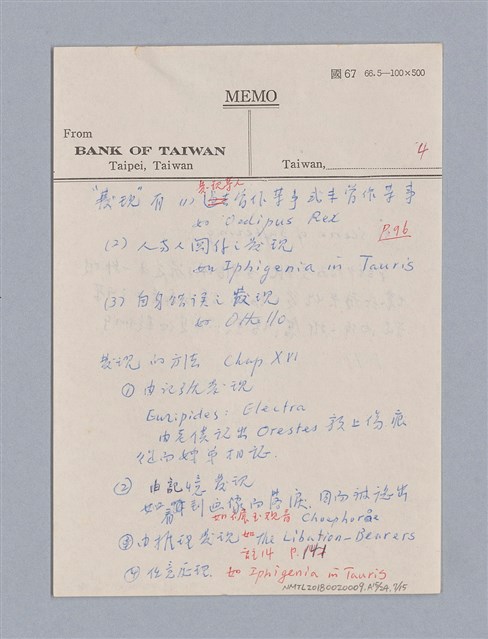 國67 66.5—100×500
MEMO
From
BANK OF TAIWAN
Taipei, Taiwan
Taiwan, 4
發現某人
"發現"有 (1) 曾作某事或未曾作某事
如 Oedipus Rex
P.96
(2) 人與人關係之發現
如 Iphigenia in Tauris
(3) 自身錯誤之發現
如 Othello
發現的方法 Chap XVI
① 由記號發現
Euripides: Electra
由老僕認出 Orestes 額上傷痕
從而姊弟相認.
② 由記憶發現
如看到画像而落淚,因而被認出
③由推理發現 如依底帕斯 Choephoroe
如 the Libation-Bearers
註14 P.141
④ 任意發現, 如 Iphigenia in Tauris
NMTL20180020009. Nº5A. 7/15